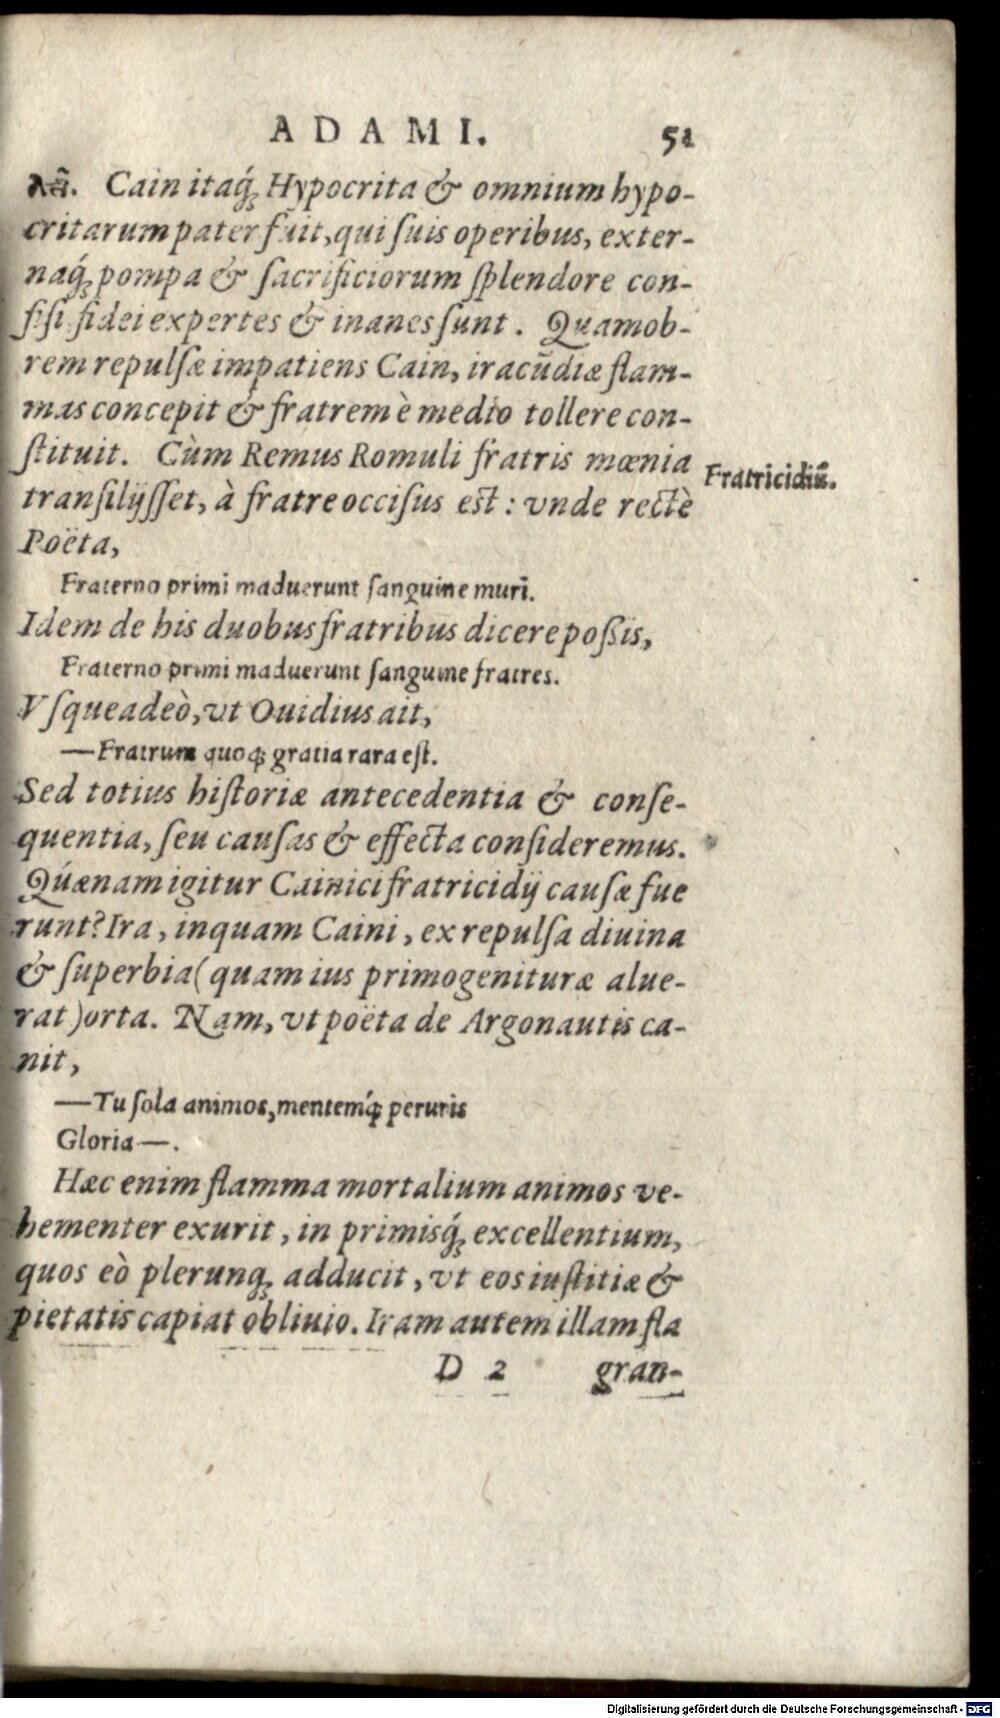 ADAMI. 51
Cain itaq́; Hypocrita & omnium hypo-
critarum pater fuit, qui suis operibus, exter-
naq́; pompa & sacrificiorum splendore con-
fisi fidei expertes & inanes sunt. Quamob-
rem repulsæ impatiens Cain, iracūdiæ flam-
mas concepit & fratrem è medio tollere con-
stituit. Cùm Remus Romuli fratris mœnia
transilijsset, à fratre occisus est: vnde rectè
Poëta,
Fratricidiū.
Fraterno primi maduerunt sanguine muri.
Idem de his duobus fratribus dicere possis,
Fraterno primi maduerunt sanguine fratres.
Vsqueadeò, vt Ouidius ait,
—Fratrum quoq; gratia rara est.
Sed totius historiæ antecedentia & conse-
quentia, seu causas & effecta consideremus.
Quænam igitur Cainici fratricidij causæ fue
runt? Ira, inquam Caini, ex repulsa diuina
& superbia (quam ius primogenituræ alue-
rat) orta. Nam, vt poëta de Argonautis ca-
nit,
—Tu sola animos, mentemq́; peruris
Gloria—.
Hæc enim flamma mortalium animos ve-
hementer exurit, in primisq́; excellentium,
quos eò plerunq; adducit, vt eos iustitiæ &
pietatis capiat obliuio. Iram autem illam fla
D 2 gran-
Digitalisierung gefördert durch die Deutsche Forschungsgemeinschaft - DFG